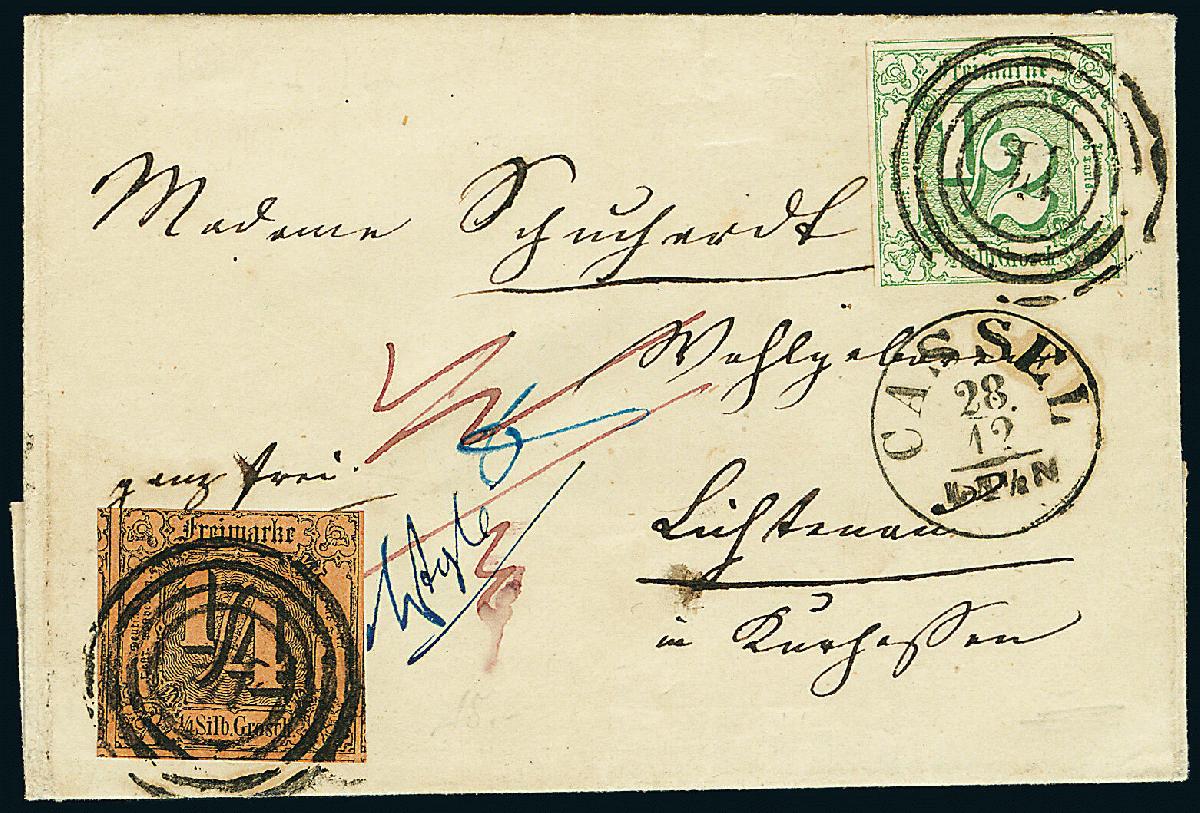 Freimarke
1/2
1/2 Silb. Grosch
Madame Schuchardt
Wohlgeboren
CASSEL
28.
12
ganz frei
Lichtenau
in Kurhessen
Freimarke
1/4
1/4 Silb. Grosch